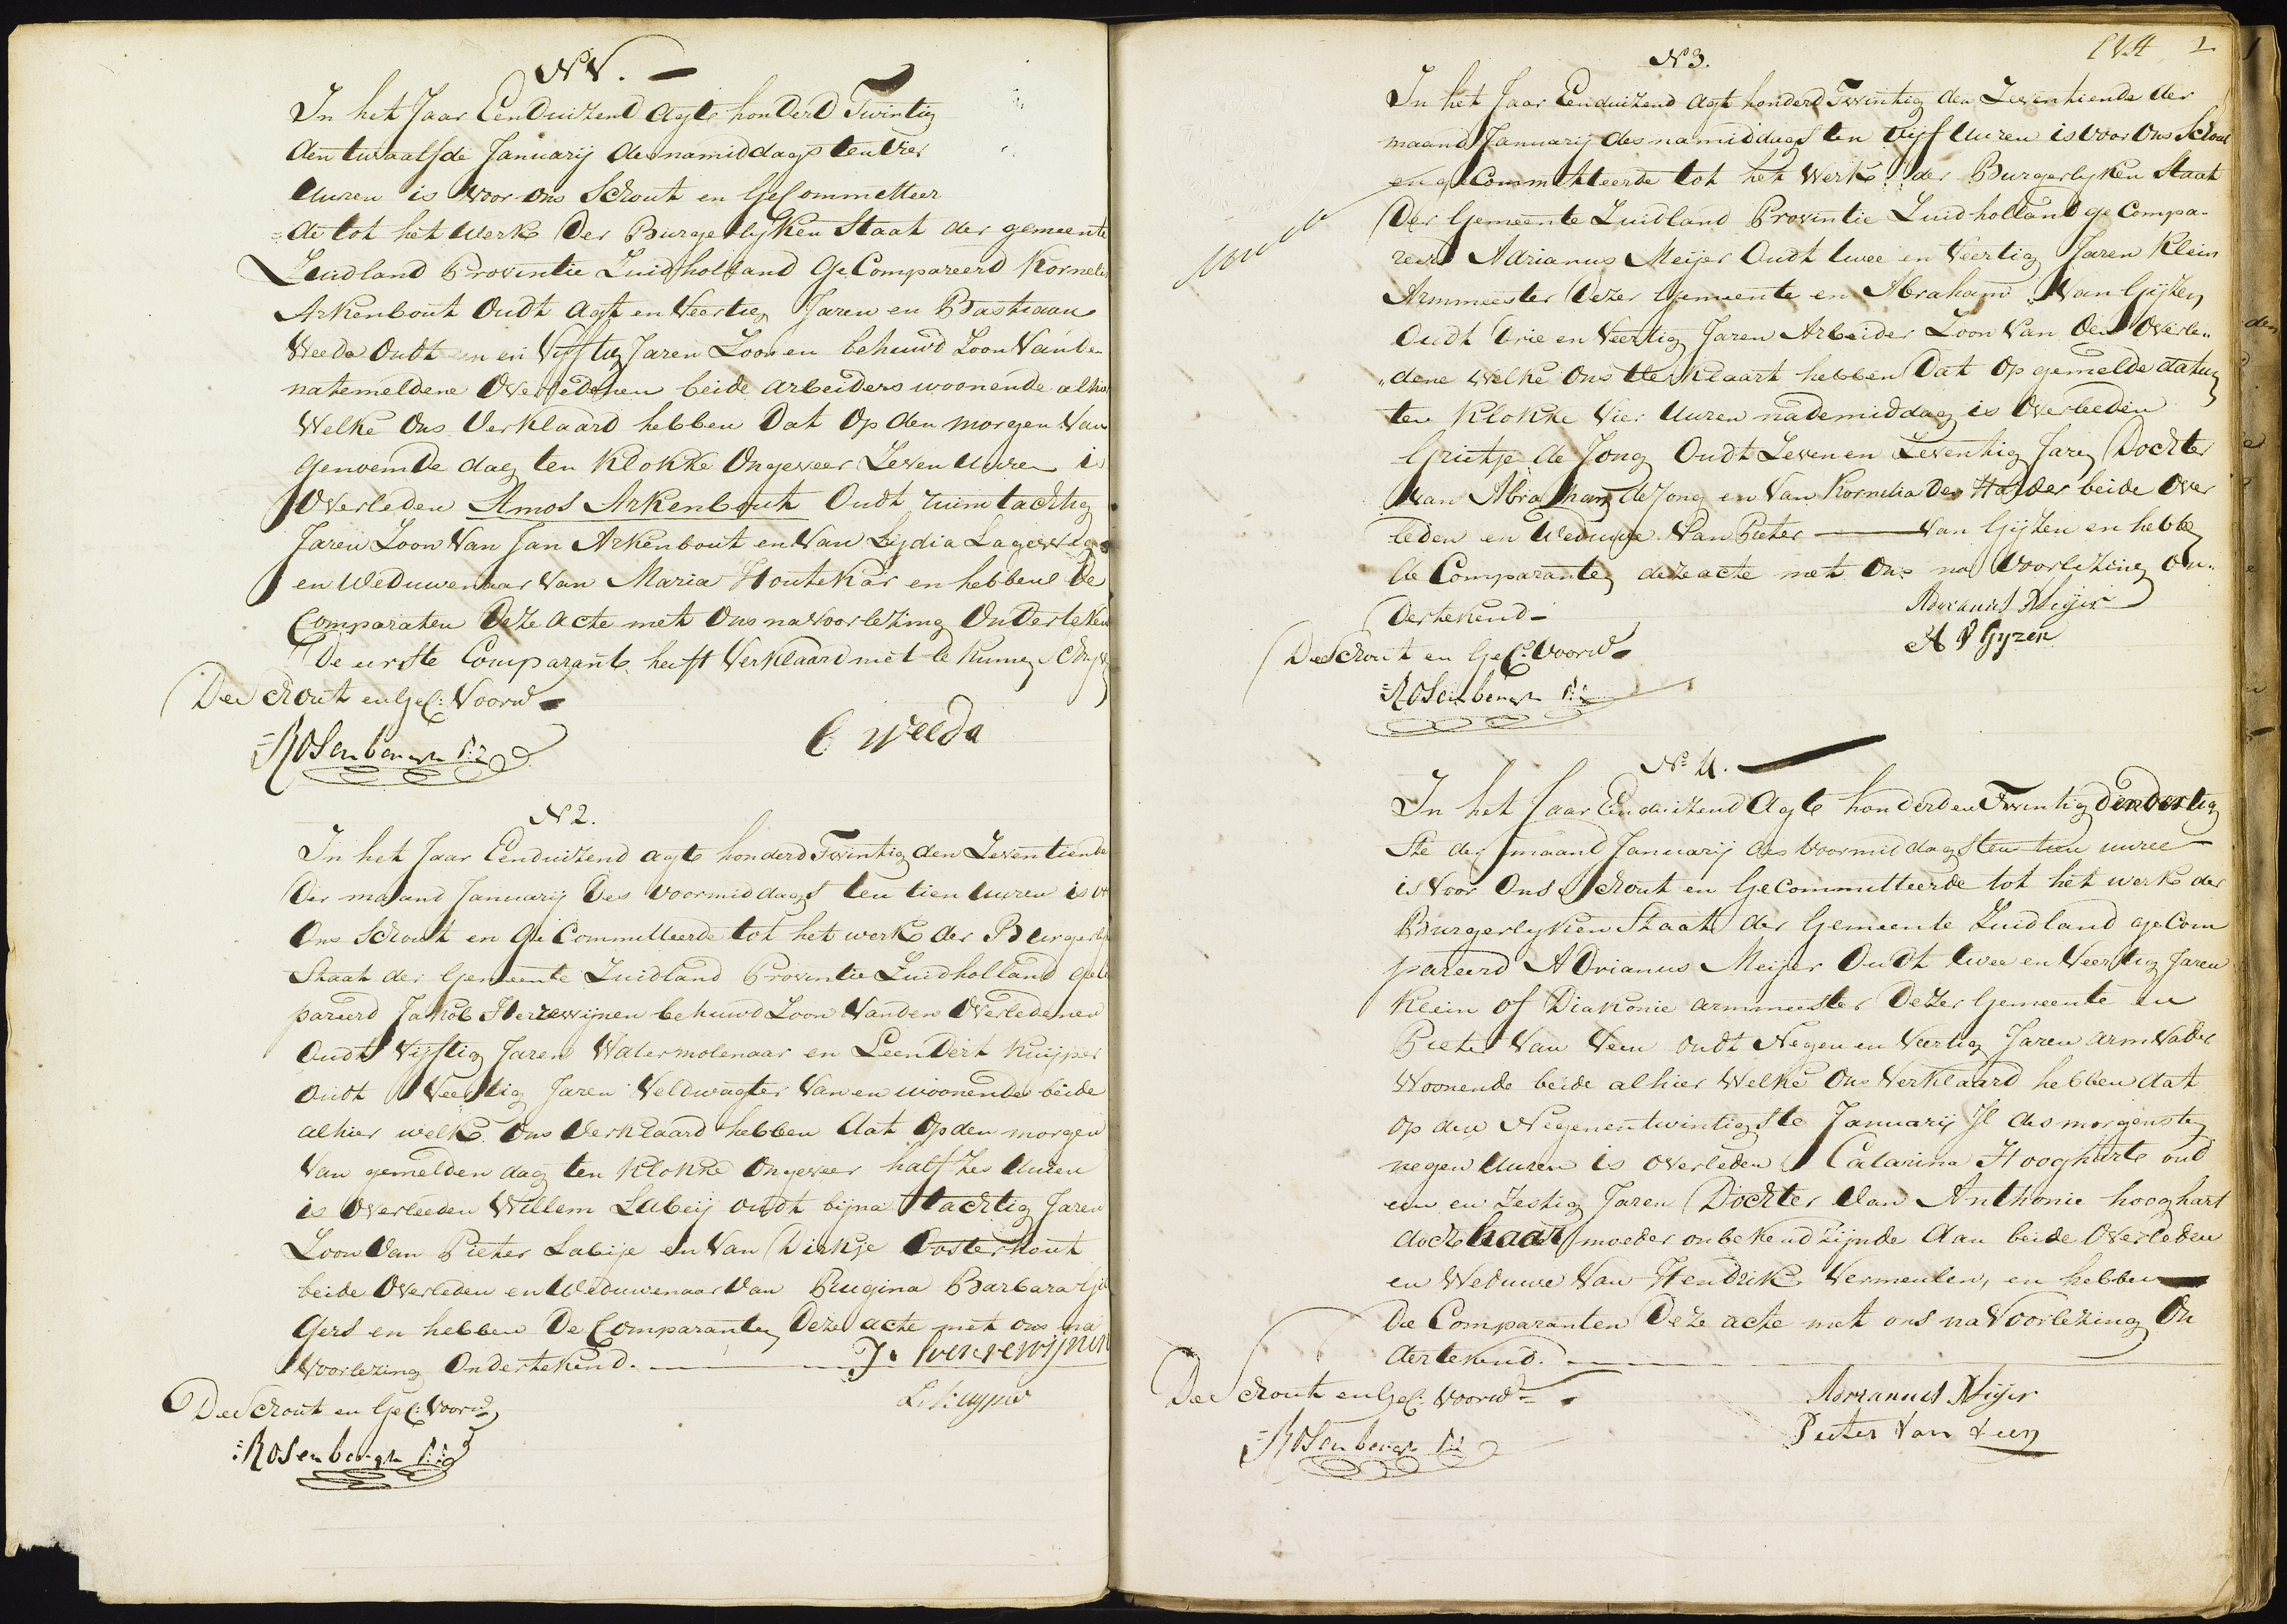 N 1.
In het Jaar Eenduizend Agt honderd Twintig
den twaalfde Januarij des namiddags ten vier
Uuren is Voor ons Schout en GeCommitteer
=de tot het Werk Der Burgerlyken Staat der gemeente
Zuidland Provintie Zuidholland GeCompareerd Kornelis
Arkenbout Oudt Agt en Veertig Jaren en Bastiaan
Weeda Oudt een en Vyftig Jaren Zoon en behuwd Zoon Van de
natemeldene Overledenen beide arbeiders woonende alhier
Welke Ons Verklaard hebben Dat Op den morgen Van
genoemde dag ten Klokke Ongeveer Zeven Uuren is
Overleden Amos Arkenbout Oudt ruim tachtig
Jaren Zoon Van Jan Arkenbout en Van Lydia Lageweg
en Weduwenaar Van Maria Houtekar en hebbend De
Comparaten Deze acte met Ons na voorlezing Onderteken
De eerste Comparant heeft Verklaard niet te kunne Schryv
De Schout en GeC: Voorn
Rosenbergh
B Weeda
N 2.
In het Jaar Eenduizend agt honderd Twintig den Zeventiende
Der maand Januarij Des voormiddags ten tien Uuren is vo
Ons Schout en GeCommitteerde tot het werk der Burgerly
Staat der Gemeente Zuidland Provintie Zuidholland geCo
pareerd Jakob Herzewijnen behuwd Zoon Van den Overledenen
Oudt Vijftig Jaren Watermolenaar en Leendert Kuijper
Oudt Veertig Jaren Veldwagter Van en woonende beide
alhier welke Ons Verklaard hebben dat Op den morgen
Van gemelden dag ten Klokke Ongeveer half Zes Uuren
is Overleeden Willem Labeij oudt bijna tachtig Jaren
Zoon Van Pieter Labije en Van Dirkje Oosterhout
beide Overleden en Weduwenaar Van Reugina Barbara
Gers en hebben De Comparanten Deze acte met ons na
Voorlezing Ondertekend.
L Kuyper
De Schout en GeC: Voorn
Rosenbergh
1
N 3.
In het Jaar Eenduizend Agt honderd Twintig den Zeventiende der
maand Januarij des namiddags ten Vijf Uuren is voor Ons Schout
en geCommitteerde tot het Werk der Burgerlyken Staat
Der Gemeente Zuidland Provintie Zuidholland geCompa-
reerd Adrianus Meijer Oudt twee en Veertig Jaren Klein
Armmeester Dezer Gemeente en Abraham Van Gijzen
Oudt Drie en Veertig Jaren Arbeider Zoon Van den Overle„
„dene welke Ons Verklaart hebben Dat Op gemelde datum
ten Klokke Vier Uuren nademiddag is Overleeden
Grietje de Jong Oudt Zeven en Zeventig Jaren Dochter
Van Abraham de Jong en Van Kornelia Den Holder beide Over
leden en Weduwe Van Pieter Van Gijzen en hebbe
de Comparanten deze acte met Ons na Voorlezing on„
Dertekend
Adrianus Meijer
A V Gyzen
De Schout en GeC: Voorn
Rosenbergh
N 4.
In het Jaar Eenduizend Agt honderd en Twintig Den dertig
Ste der maand Januarij des Voormiddags ten tien uuren
is Voor Ons Schout en GeCommitteerde tot het werk der
Burgerlyken Staat der Gemeente Zuidland geCom
pareerd Adrianus Meijer Oudt twee en Veertig Jaren
Klein of Diakonie armmeester Dezer Gemeente en
Pieter Van Veen oudt Negen en Veertig Jaren armvader
Woonende beide alhier Welke Ons Verklaard hebben dat
op den Negenentwintigste Januarij Jl des morgens ten
negen Uuren is Overleden Catarina Hooghart oud
een en Zestig Jaren Dochter Van Anthonie hooghart
doch haar moeder onbekend Zijnde dan beide Overleden
en Weduwe Van Hendrik Vermeulen, en hebben
De Comparanten Deze acte met ons na Voorlezing On
dertekend.
De Schout en GeC: Voorn
Rosenbergh
Adrianus Meijer
Pieter Van Veen